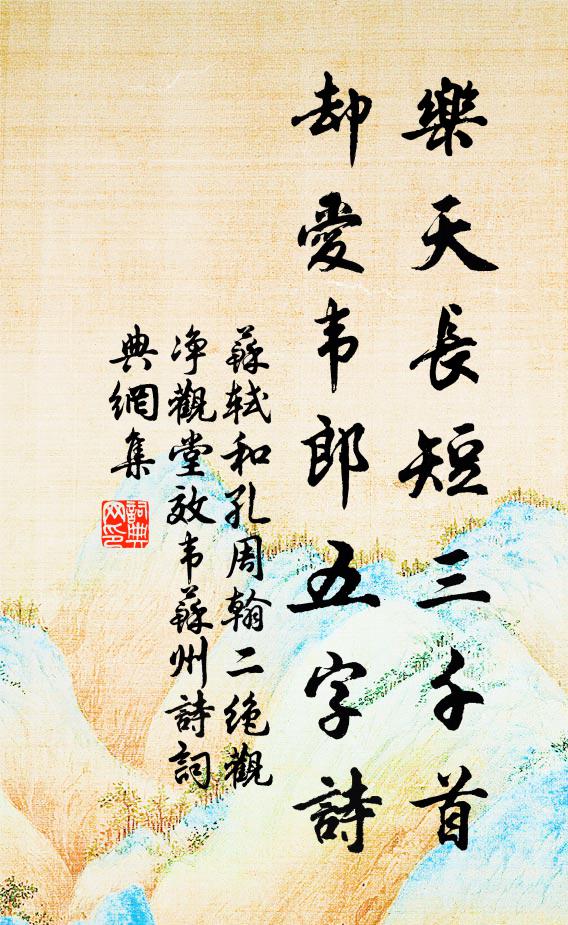 樂天長短三千首
却愛韦郎五字詩
蘇軾和孔周翰二绝觀
净觀堂效韦蘇州詩詞
典網集
詞典
网印